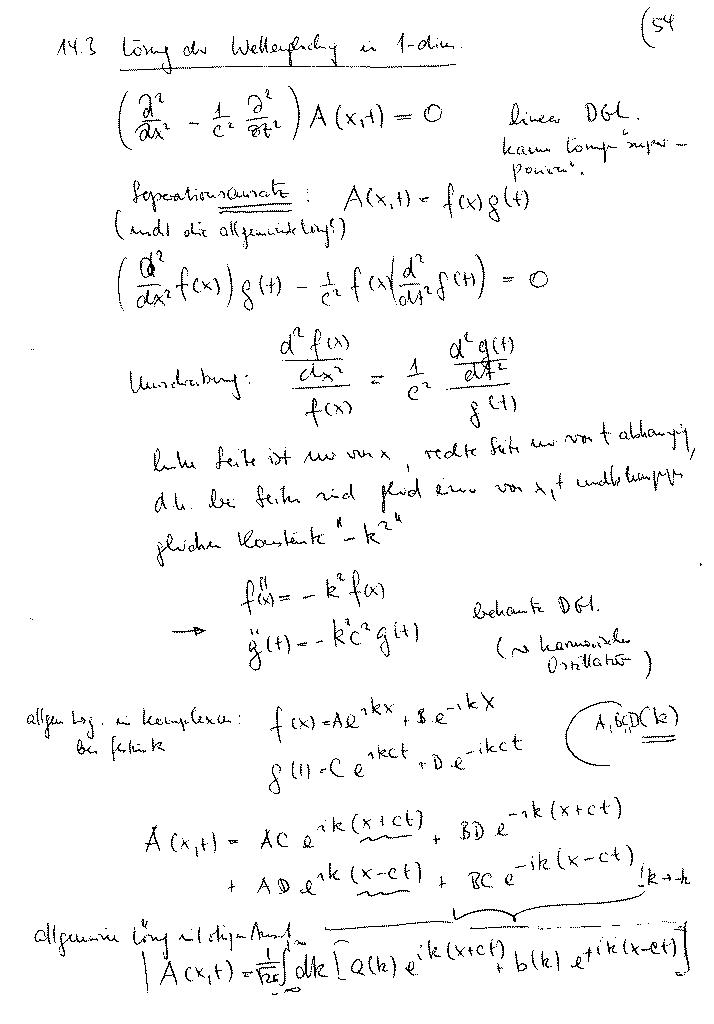 (54
14.3 Lösung der Wellengleichung in 1-dim.
(∂²/∂x² − 1/c² ∂²/∂t²) A(x,t) = 0
linear DGL.
kann Lösung "super-
ponieren".
Separationsansatz : A(x,t) = f(x) g(t)
(nicht die allgemeinste Lösg!)
(d²/dx² f(x)) g(t) − 1/c² f(x) (d²/dt² g(t)) = 0
Umschreibung: (d² f(x)/dx²)/f(x) = 1/c² (d² g(t)/dt²)/g(t)
linke Seite ist nur von x, rechte Seite nur von t abhängig,
d.h. beide Seiten sind gleich einer von x,t unabhängigen
gleichen Konstante "−k²"
f''(x) = − k² f(x)
→ g̈(t) = − k²c² g(t)
bekannte DGL.
(→ harmonischer
Oszillator)
allgem. Lsg. im komplexen: f(x) = A e^{ikx} + B e^{−ikx}
bei festem k g(t) = C e^{ikct} + D e^{−ikct}
A,B,C,D(k)
A(x,t) = AC e^{ik(x+ct)} + BD e^{−ik(x+ct)}
+ AD e^{ik(x−ct)} + BC e^{−ik(x−ct)}
k→−k
allgemeine Lösung mit obigem Ansatz
A(x,t) = 1/√2π ∫_{−∞}^{∞} dk [a(k) e^{ik(x+ct)} + b(k) e^{+ik(x−ct)}]